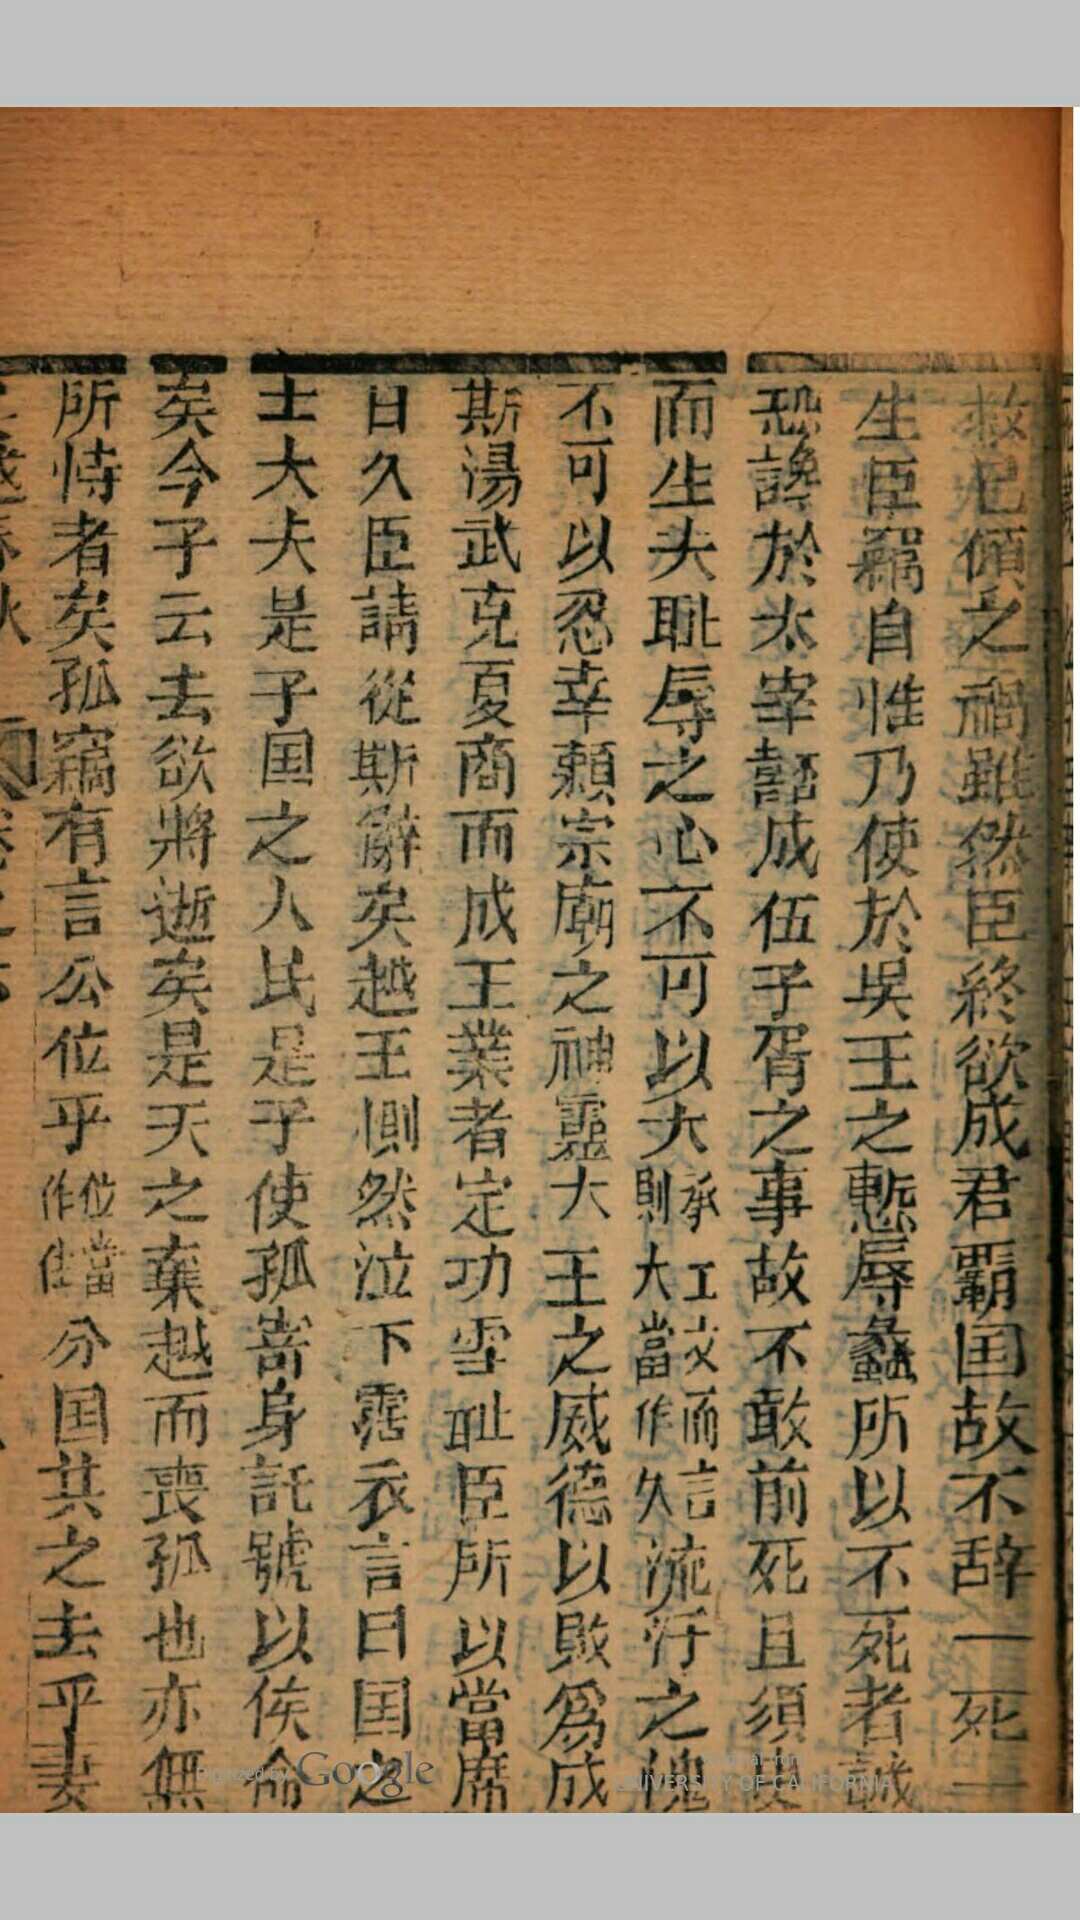 救已傾之禍雖然臣終欲成君霸囯故不辞一死一
生臣竊自惟乃使於吳王之慙辱蠡所以不死者誠
恐讒於太宰嚭成伍子胥之事故不敢前死且須臾
而生夫恥辱之心不可以大承上文而言則大當作久流汗之愧
不可以忍幸賴宗廟之神靈大王之威德以敗爲成
斯湯武克夏商而成王業者定功雪恥臣所以當席
日久臣請從斯辭矣越王惻然泣下霑衣言曰囯之
士大夫是子囯之人民是子使孤寄身託號以俟命
矣今子云去欲將逝矣是天之棄越而喪孤也亦無
所恃者矣孤竊有言公位乎位當作住分囯共之去乎妻
Digitized by Google
Original from
UNIVERSITY OF CALIFORNIA